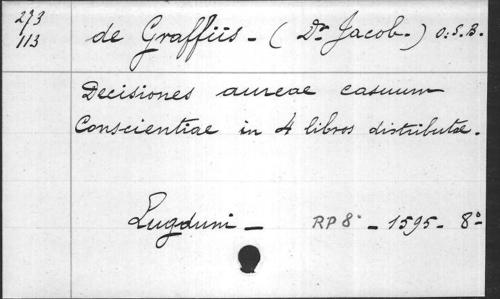 273
113
de Graffiis - (Dr Jacob.) O.S.B.
Decisiones aureae casuum
Conscientiae in 4 libros distributae.
Lugduni - RP 8° - 1595 - 8°